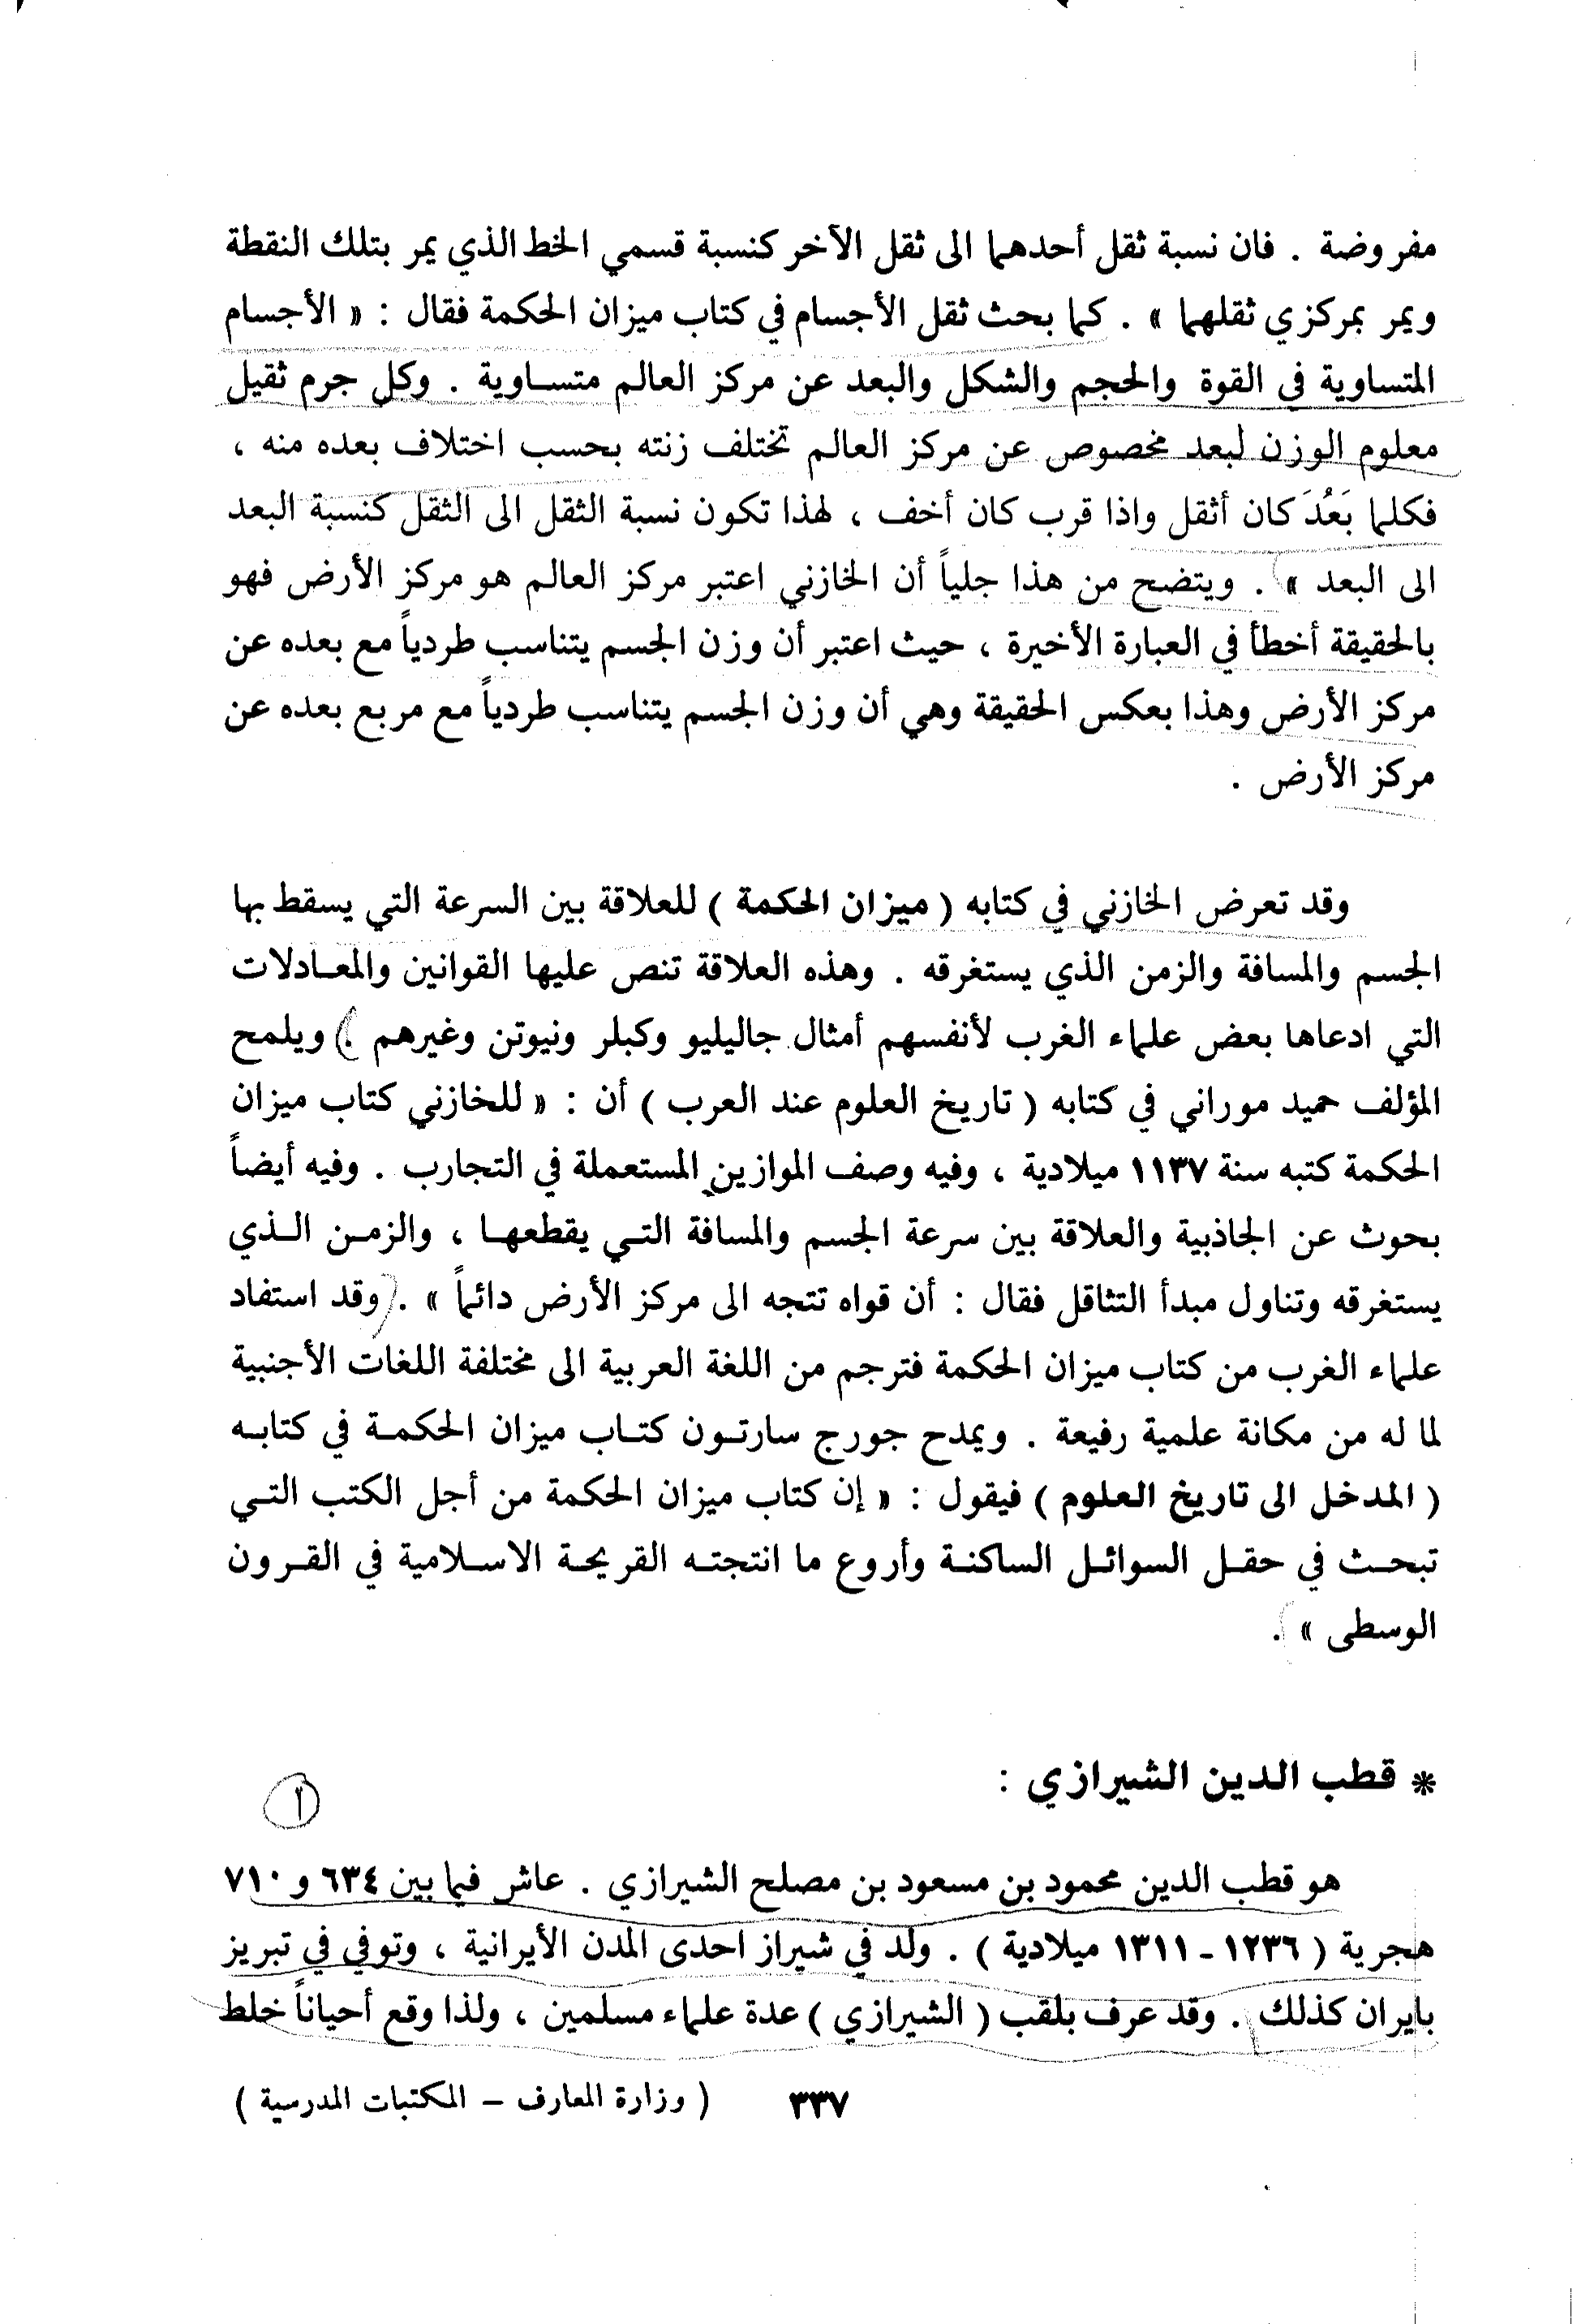 مفروضة . فان نسبة ثقل أحدهما الى ثقل الآخر كنسبة قسمي الخط الذي يمر بتلك النقطة
ويمر بمركزي ثقلهما » . كما بحث ثقل الأجسام في كتاب ميزان الحكمة فقال : « الأجسام
المتساوية في القوة والحجم والشكل والبعد عن مركز العالم متساوية . وكل جرم ثقيل
معلوم الوزن لبعد مخصوص عن مركز العالم تختلف زنته بحسب اختلاف بعده منه ،
فكلما بَعُدَ كان أثقل واذا قرب كان أخف ، لهذا تكون نسبة الثقل الى الثقل كنسبة البعد
الى البعد » . ويتضح من هذا جلياً أن الخازني اعتبر مركز العالم هو مركز الأرض فهو
بالحقيقة أخطأ في العبارة الأخيرة ، حيث اعتبر أن وزن الجسم يتناسب طردياً مع بعده عن
مركز الأرض وهذا بعكس الحقيقة وهي أن وزن الجسم يتناسب طردياً مع مربع بعده عن
مركز الأرض .
وقد تعرض الخازني في كتابه ( ميزان الحكمة ) للعلاقة بين السرعة التي يسقط بها
الجسم والمسافة والزمن الذي يستغرقه . وهذه العلاقة تنص عليها القوانين والمعادلات
التي ادعاها بعض علماء الغرب لأنفسهم أمثال جاليليو وكبلر ونيوتن وغيرهم . ويلمح
المؤلف حميد موراني في كتابه ( تاريخ العلوم عند العرب ) أن : « للخازني كتاب ميزان
الحكمة كتبه سنة ١١٣٧ ميلادية ، وفيه وصف الموازين المستعملة في التجارب . وفيه أيضاً
بحوث عن الجاذبية والعلاقة بين سرعة الجسم والمسافة التي يقطعها ، والزمن الذي
يستغرقه وتناول مبدأ التثاقل فقال : أن قواه تتجه الى مركز الأرض دائماً » . وقد استفاد
علماء الغرب من كتاب ميزان الحكمة فترجم من اللغة العربية الى مختلفة اللغات الأجنبية
لما له من مكانة علمية رفيعة . ويمدح جورج سارتون كتاب ميزان الحكمة في كتابه
( المدخل الى تاريخ العلوم ) فيقول : « إن كتاب ميزان الحكمة من أجل الكتب التي
تبحث في حقل السوائل الساكنة وأروع ما انتجته القريحة الاسلامية في القرون
الوسطى » .
* قطب الدين الشيرازي :
١
هو قطب الدين محمود بن مسعود بن مصلح الشيرازي . عاش فيما بين ٦٣٤ و ٧١٠
هجرية ( ١٢٣٦ - ١٣١١ ميلادية ) . ولد في شيراز احدى المدن الأيرانية ، وتوفي في تبريز
بايران كذلك . وقد عرف بلقب ( الشيرازي ) عدة علماء مسلمين ، ولذا وقع أحياناً خلط
٣٣٧ ( وزارة المعارف – المكتبات المدرسية )